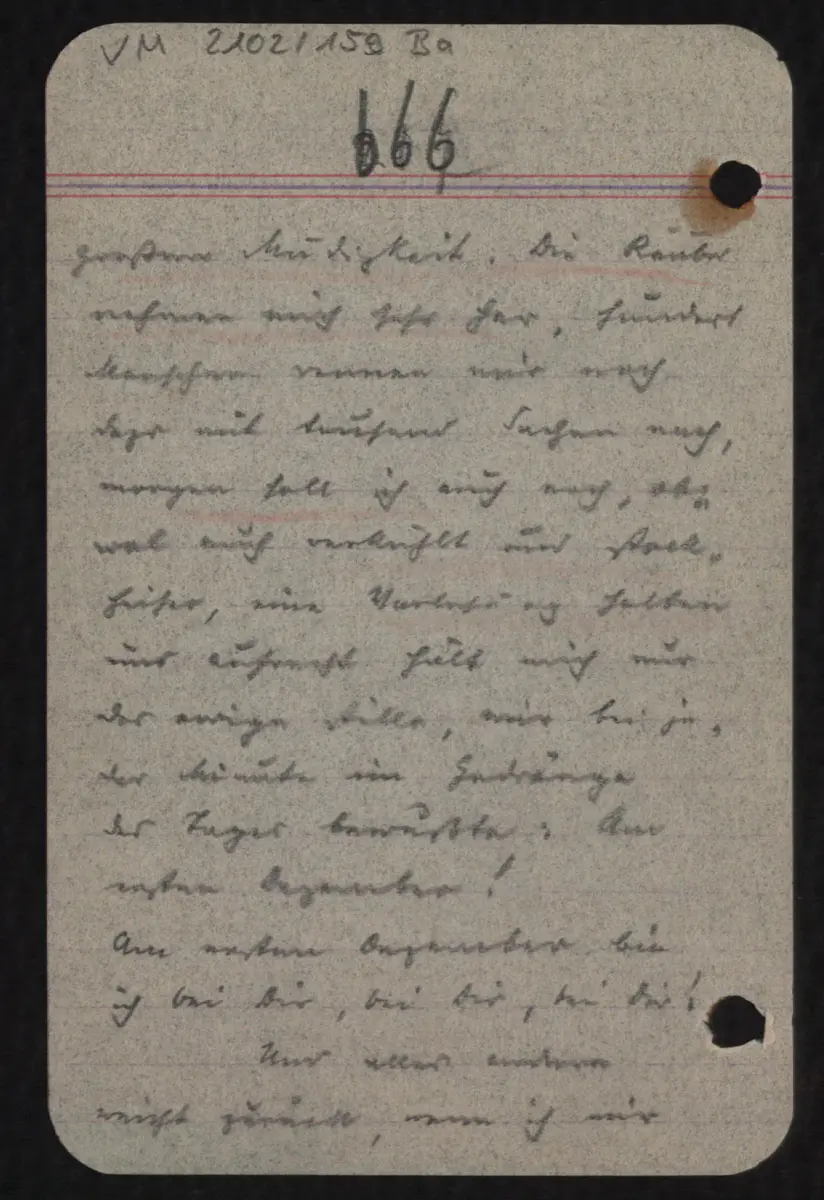 VM 2102/159 Ba
666
grosser Müdigkeit. Die Räuber
nehmen mich sehr her, hundert
Menschen rennen mir noch
dazu mit tausend Sachen nach,
morgen soll ich auch noch, ob-
wol auch verkühlt und stock-
heiser, eine Vorlesung halten
und aufrecht hält mich nur
der ewige stille, mir bei je-
der Minute im Gedränge
des Tages bewußte: Am
ersten Dezember!
Am ersten Dezember bin
ich bei Dir, bei Dir, bei Dir!
Und alles andere
weicht zurück, wenn ich mir